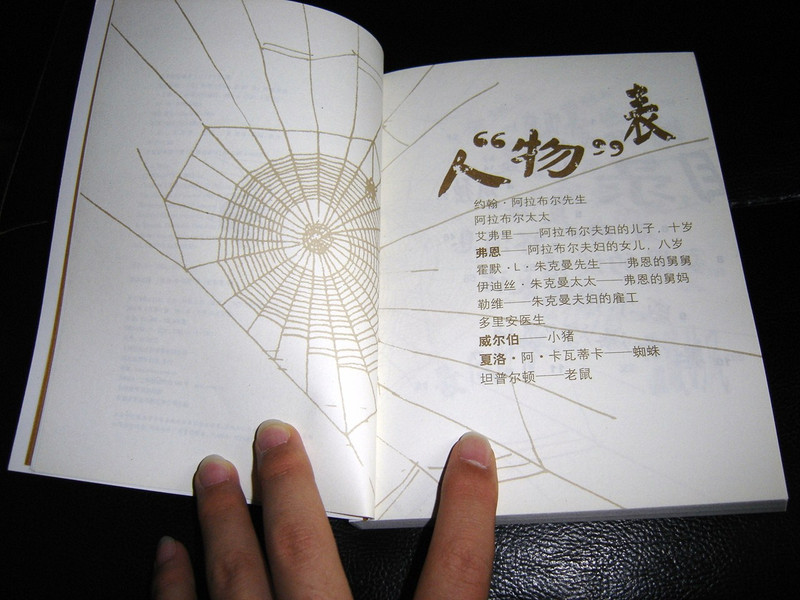 人“物”表
约翰·阿拉布尔先生
阿拉布尔太太
艾弗里——阿拉布尔夫妇的儿子，十岁
弗恩——阿拉布尔夫妇的女儿，八岁
霍默·L·朱克曼先生——弗恩的舅舅
伊迪丝·朱克曼太太——弗恩的舅妈
勒维——朱克曼夫妇的雇工
多里安医生
威尔伯——小猪
夏洛·阿·卡瓦蒂卡——蜘蛛
坦普尔顿——老鼠